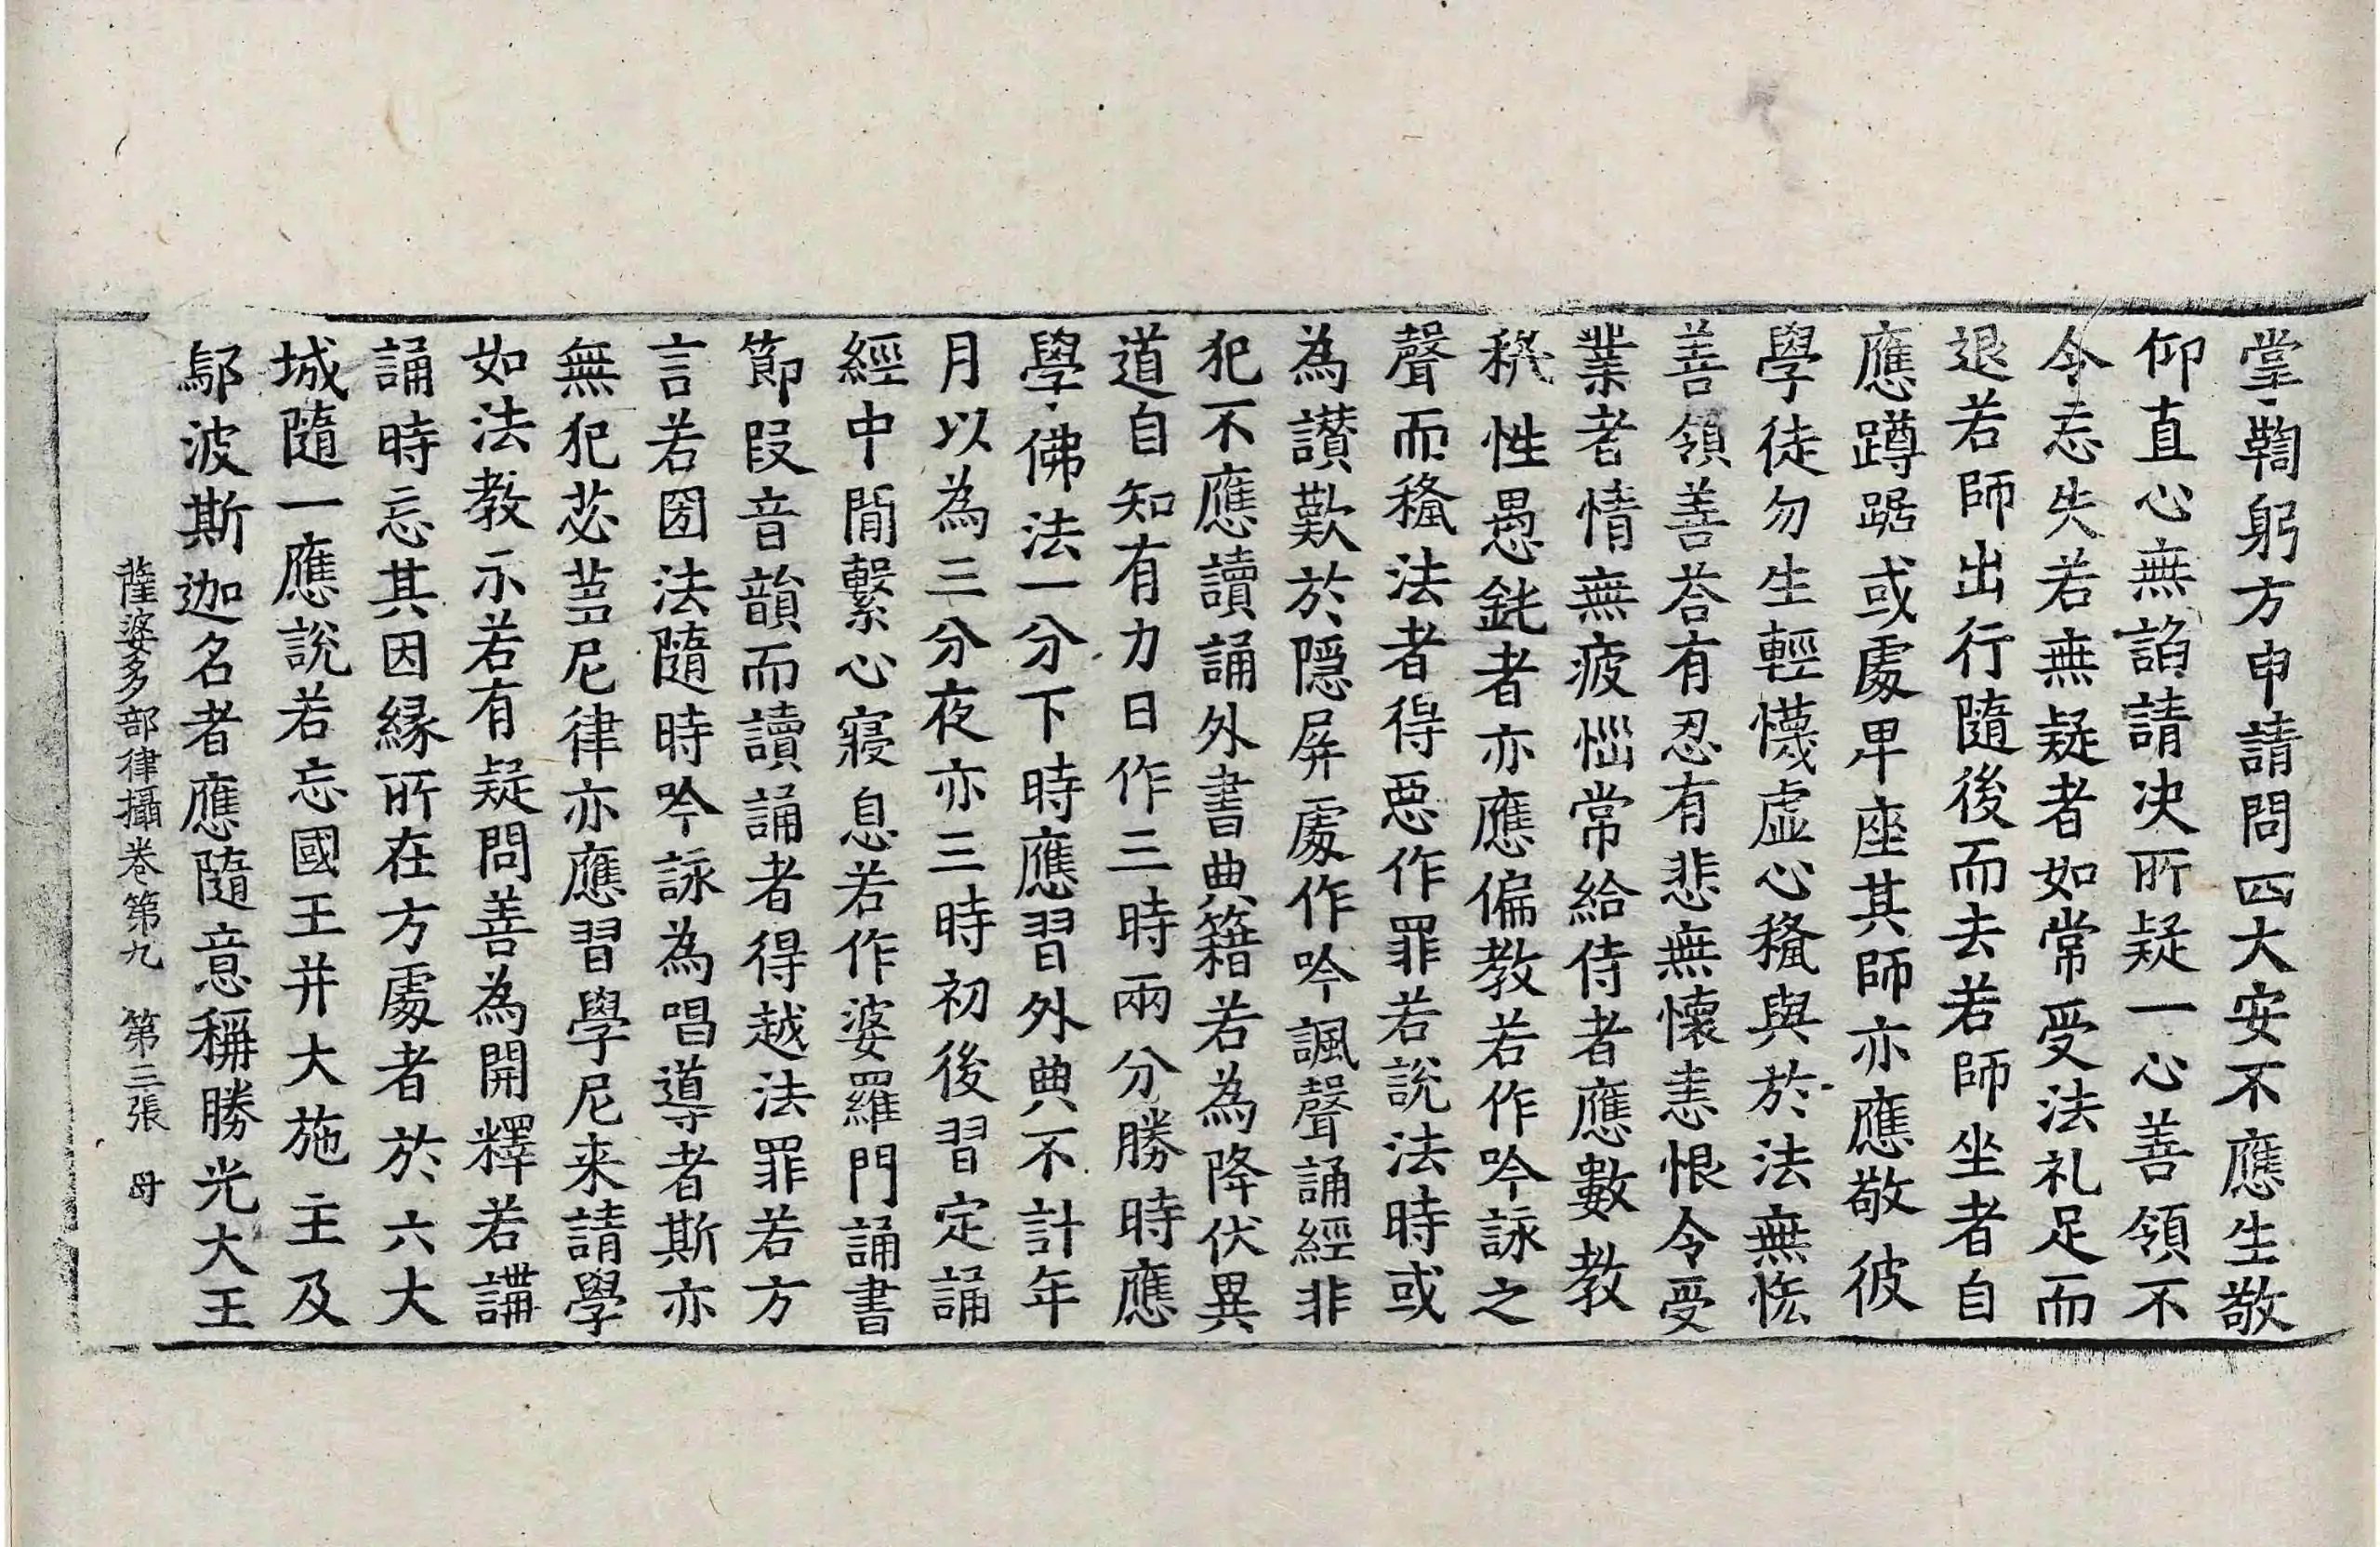 掌鞠躬方申請問四大安不應生敬
仰直心無諂請決所疑一心善領不
令忘失若無疑者如常受法礼足而
退若師出行隨後而去若師坐者自
應蹲踞或處卑座其師亦應敬彼
學徒勿生輕懱虛心稱與於法無悋
善領善荅有忍有悲無懷恚恨令受
業者情無疲惱常給侍者應數教
稱性愚鈍者亦應偏教若作吟詠之
聲而稱法者得惡作罪若說法時或
為讃歎於隱屏處作吟諷聲誦經非
犯不應讀誦外書典籍若為降伏異
道自知有力日作三時兩分勝時應
學佛法一分下時應習外典不計年
月以為三分夜亦三時初後習定誦
經中間繫心寢息若作婆羅門誦書
節段音韻而讀誦者得越法罪若方
言若囙法隨時吟詠為唱導者斯亦
無犯苾芻尼律亦應習學尼来請學
如法教示若有疑問善為開釋若講
誦時忘其因緣所在方處者於六大
城隨一應說若忘國王并大施主及
鄔波斯迦名者應隨意稱勝光大王
薩婆多部律攝卷第九　第三張　母